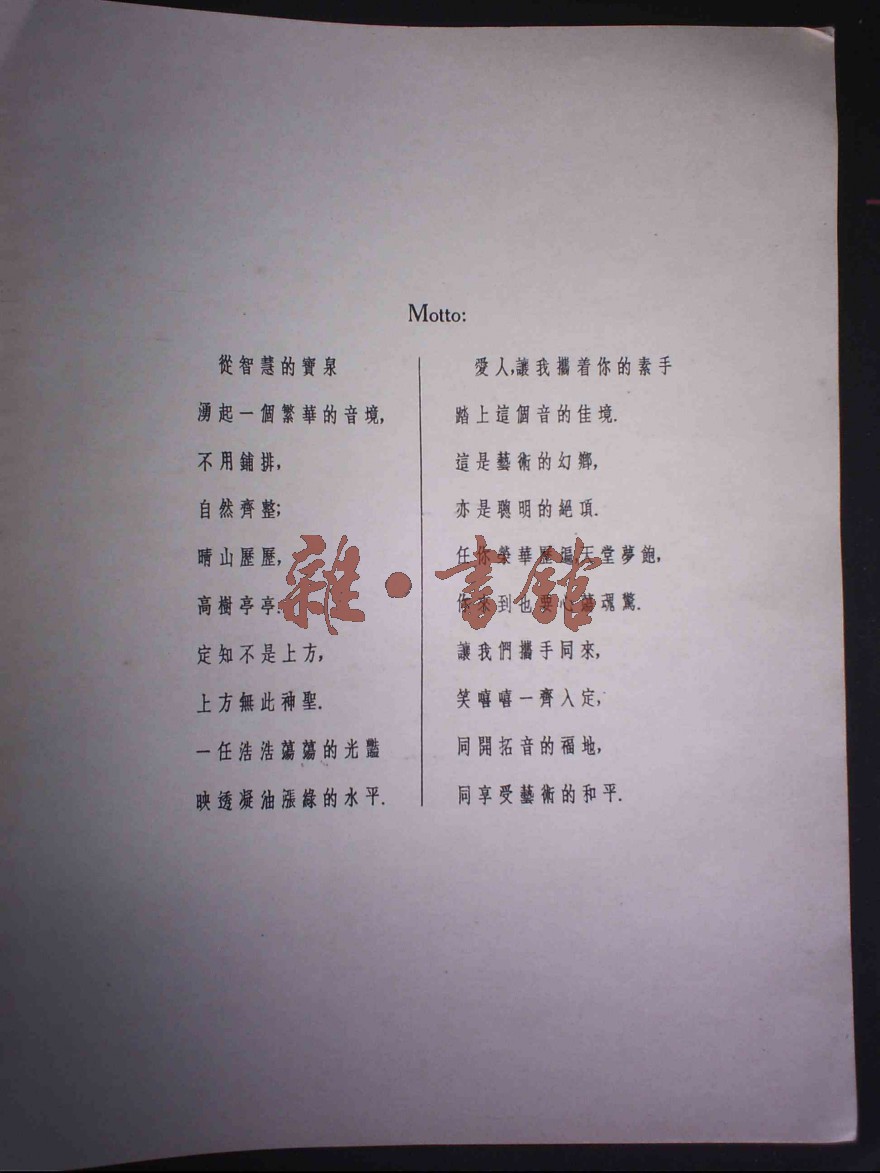 Motto:
從智慧的寶泉
湧起一個繁華的音境,
不用鋪排,
自然齊整;
晴山歷歷,
高樹亭亭.
定知不是上方,
上方無此神聖.
一任浩浩蕩蕩的光豔
映透凝油漲綠的水平.
愛人,讓我攜着你的素手
踏上這個音的佳境.
這是藝術的幻鄉,
亦是聰明的絕頂.
任你榮華歷遍,天堂夢飽,
你來到也要心蕩魂驚.
讓我們攜手同來,
笑嘻嘻一齊入定,
同開拓音的福地,
同享受藝術的和平.
雜·書館